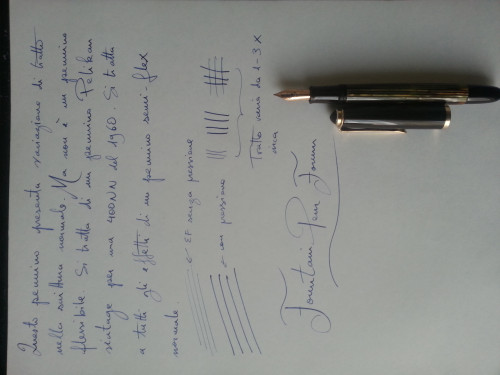 Questo pennino presenta variazione di tratto
nella scrittura normale. Ma non è un pennino
flessibile. Si tratta di un pennino Pelikan
vintage per una 400NN del 1960. Si tratta
a tutti gli effetti di un pennino semi-flex
normale.
← EF senza pressione
← con pressione
Tratto varia da 1-3x
circa
Fountain Pen Forum